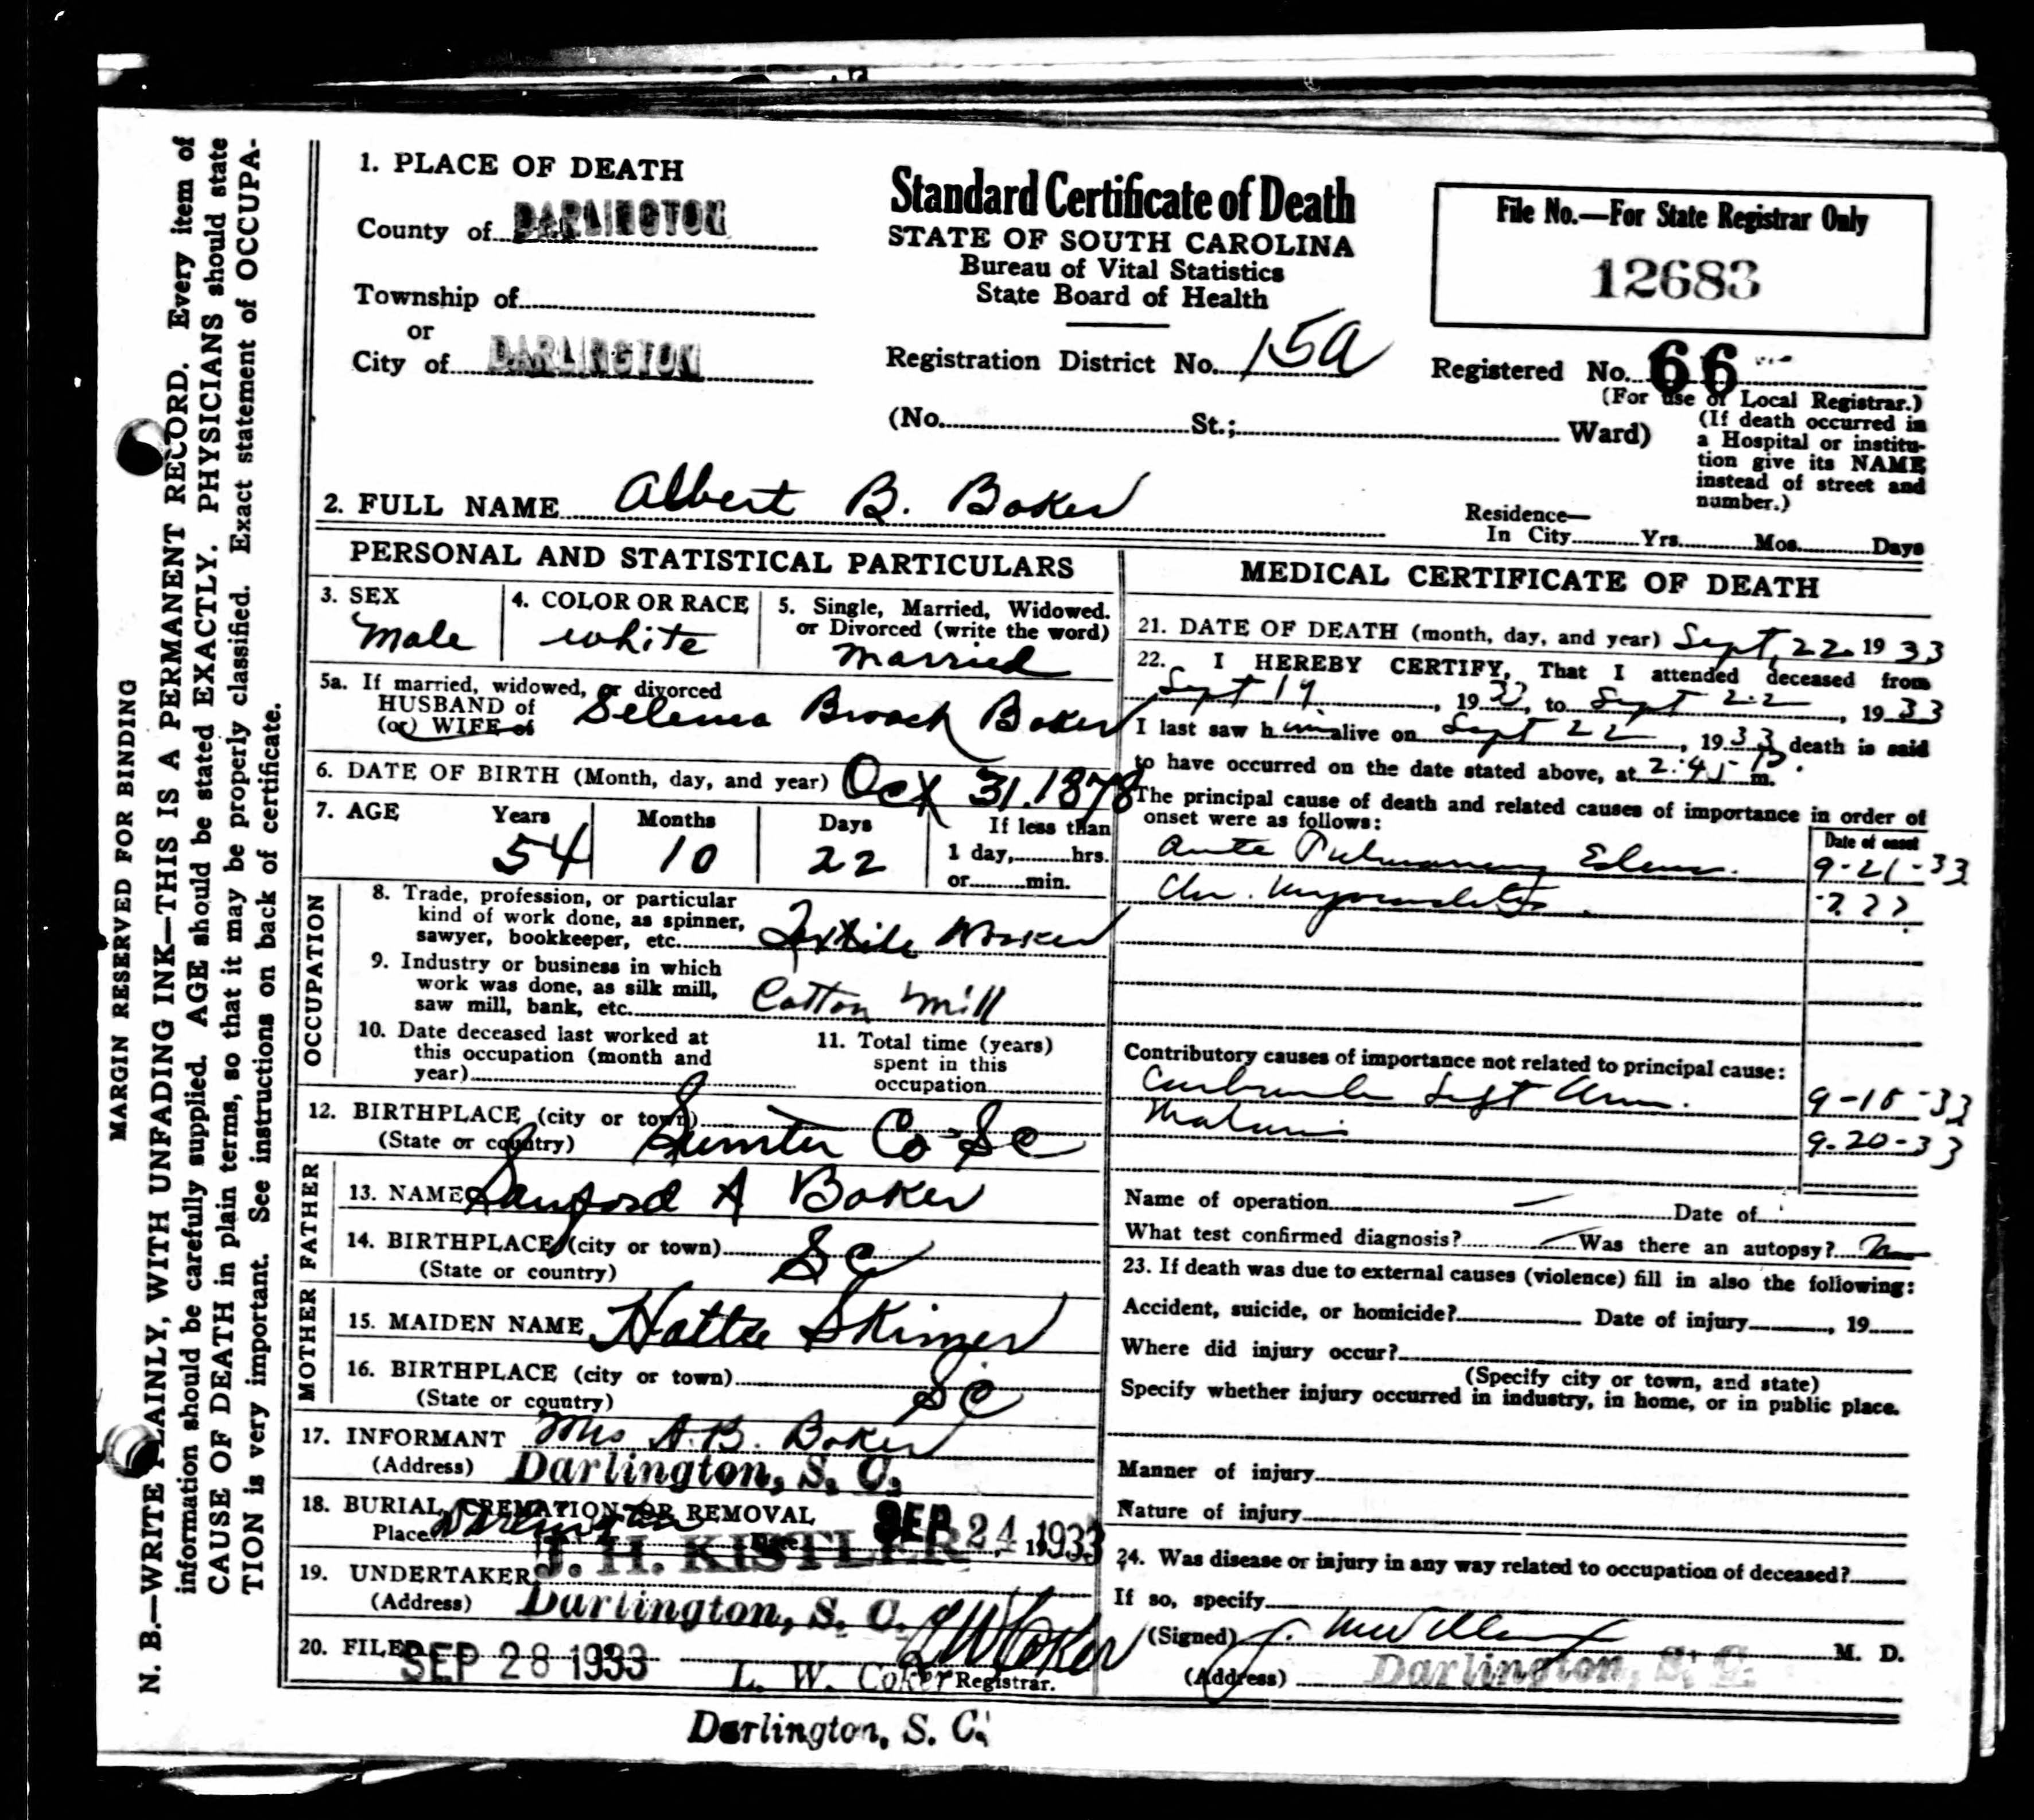 MARGIN RESERVED FOR BINDING
N. B.—WRITE PLAINLY, WITH UNFADING INK—THIS IS A PERMANENT RECORD. Every item of
information should be carefully supplied. AGE should be stated EXACTLY. PHYSICIANS should state
CAUSE OF DEATH in plain terms, so that it may be properly classified. Exact statement of OCCUPA-
TION is very important. See instructions on back of certificate.
1. PLACE OF DEATH
County of DARLINGTON
Township of
or
City of DARLINGTON
Standard Certificate of Death
STATE OF SOUTH CAROLINA
Bureau of Vital Statistics
State Board of Health
File No.—For State Registrar Only
12683
Registration District No. 15a
Registered No. 66
(For use of Local Registrar.)
(No. St.; Ward)
(If death occurred in
a Hospital or institu-
tion give its NAME
instead of street and
number.)
2. FULL NAME Albert B. Baker
Residence—
In City Yrs. Mos. Days
PERSONAL AND STATISTICAL PARTICULARS
3. SEX
Male
4. COLOR OR RACE
white
5. Single, Married, Widowed.
or Divorced (write the word)
married
5a. If married, widowed, or divorced
HUSBAND of
(or) WIFE of
Selema Broach Baker
6. DATE OF BIRTH (Month, day, and year) Oct 31. 1878
7. AGE Years Months Days If less than
54 10 22 1 day, hrs.
or min.
OCCUPATION
8. Trade, profession, or particular
kind of work done, as spinner,
sawyer, bookkeeper, etc. Textile Worker
9. Industry or business in which
work was done, as silk mill,
saw mill, bank, etc. Cotton mill
10. Date deceased last worked at
this occupation (month and
year)
11. Total time (years)
spent in this
occupation
12. BIRTHPLACE (city or town)
(State or country) Sumter Co SC
FATHER
13. NAME Sanford A Baker
14. BIRTHPLACE (city or town)
(State or country) SC
MOTHER
15. MAIDEN NAME Hattie Skinner
16. BIRTHPLACE (city or town)
(State or country) SC
17. INFORMANT Mrs A.B. Baker
(Address) Darlington, S. C.
18. BURIAL, CREMATION OR REMOVAL
Place Darlington Date SEP 24 1933
19. UNDERTAKER J. H. KISTLER
(Address) Darlington, S. C.
20. FILED SEP 28 1933 LW Coker
L. W. Coker Registrar.
Darlington, S. C.
MEDICAL CERTIFICATE OF DEATH
21. DATE OF DEATH (month, day, and year) Sept, 22. 1933
22. I HEREBY CERTIFY, That I attended deceased from
Sept 19, 1933, to Sept 22, 1933
I last saw him alive on Sept 22, 1933 death is said
to have occurred on the date stated above, at 2:45 P. m.
The principal cause of death and related causes of importance in order of
onset were as follows:
Date of onset
Acute Pulmonary Edema. 9-21-33
Chr. Myocarditis ???
Contributory causes of importance not related to principal cause:
Carbuncle Left Arm. 9-15-33
Malaria 9-20-33
Name of operation — Date of
What test confirmed diagnosis? — Was there an autopsy? no
23. If death was due to external causes (violence) fill in also the following:
Accident, suicide, or homicide? Date of injury , 19
Where did injury occur?
(Specify city or town, and state)
Specify whether injury occurred in industry, in home, or in public place.
Manner of injury
Nature of injury
24. Was disease or injury in any way related to occupation of deceased?
If so, specify
(Signed) M. D.
(Address) Darlington, S. C.